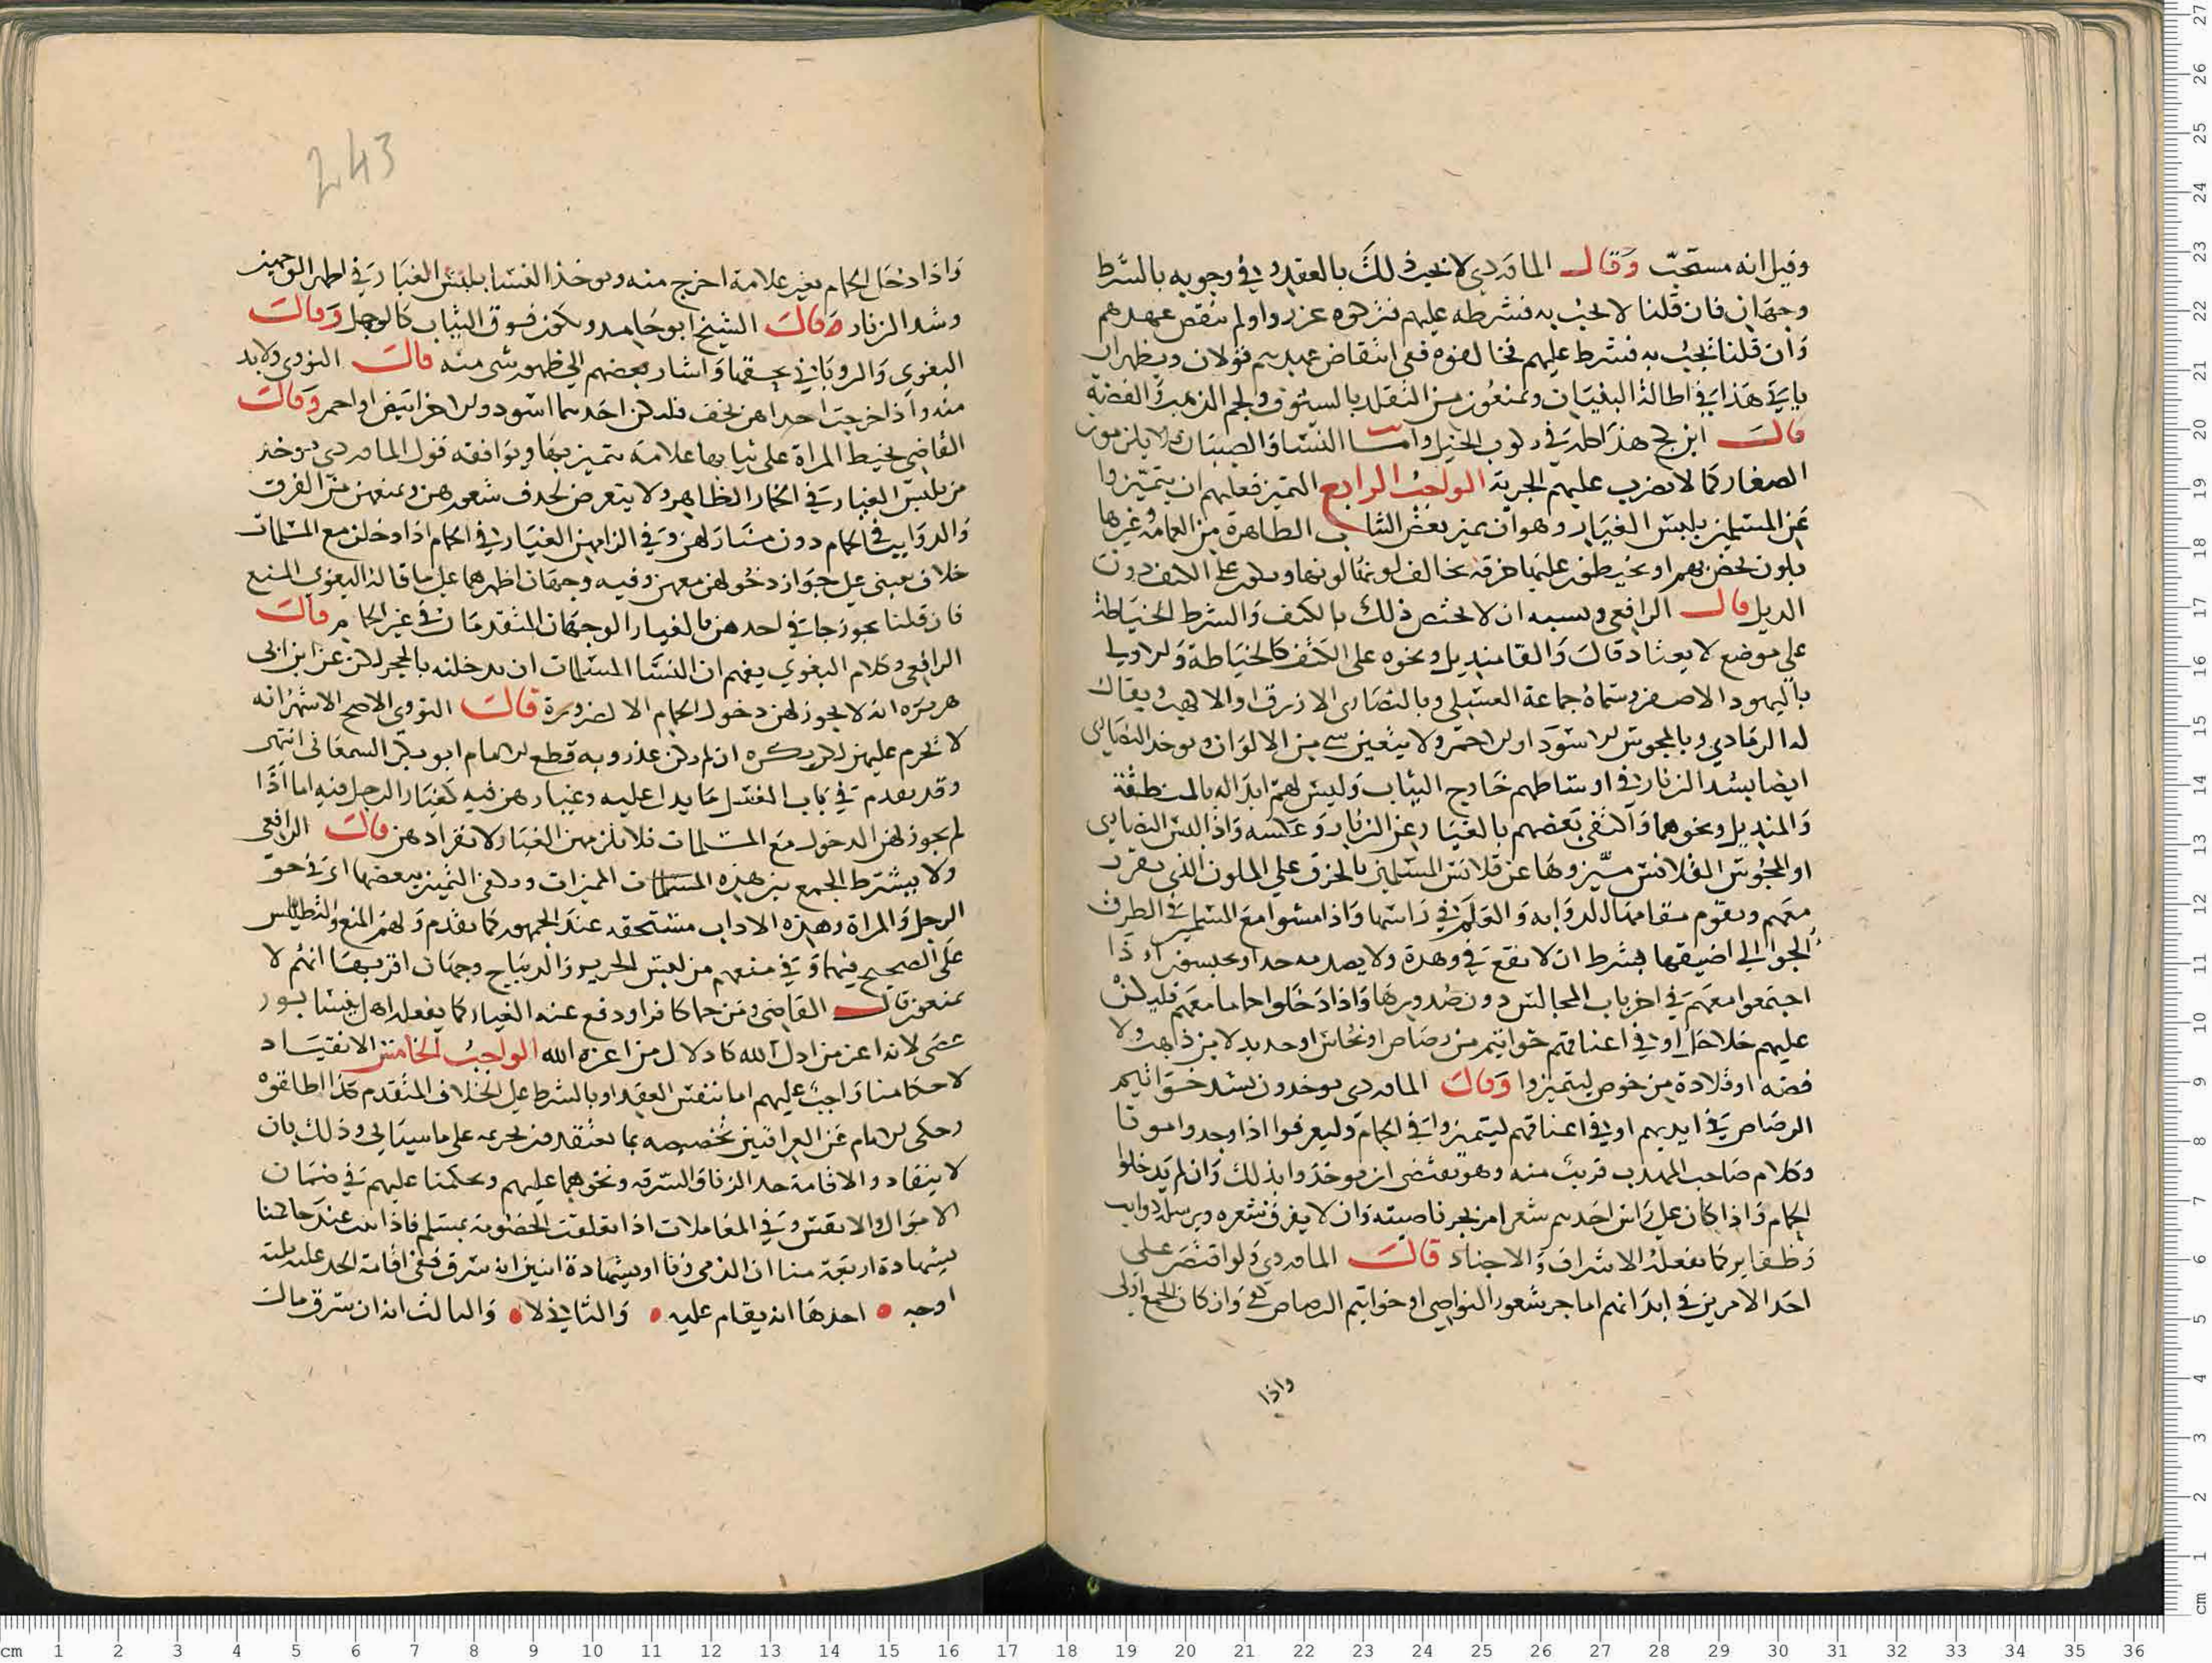 وقيل انه مستحبّ وَقال الماوردي لا يجب ذلك بالعقد وفي وجوبه بالشرط
وجهان فان قلنا لا يجب به فشرطه عليهم فتركوه عزروا ولم ينقض عهدهم
وَان قلنا يجب به فشرط عليهم فخالفوه ففي انتقاض عهدهم قولان ويظهر ان
ياتي هذا في اطالة البنيان ويمنعون من التقلد بالسيوف ولجم الذهب والفضة
قالَ ابن كج هذا اظهر في ركوب الخيل وامّا النسا والصبيان لا يلزمون
الصغار كما لا يضرب عليهم الجزية الواجب الرابع التميز فعليهم ان يتميّزوا
عن المسلمين بلبس الغيار وهو ان يميز بعض الثياب الظاهرة من العمامة وغيرها
بلون يخصهم او يخيطون عليها خرقة يخالف لونها لونها ويكون على الكتف دون
الذيل قال الرافعي ويشبه ان لا يختص ذلك بالكتف والشرط الخياطة
على موضع لا يعتاد قالَ والقا منديل ونحوه على الكتف كالخياطة والاولى
باليهود الاصفر وسماهُ جماعة العسلي وبالنصارى الازرق او الاكهب ويقال
له الرمادي وبالمجوس الاسود او الاحمر ولا يتعين شي من الالوان ويوخذ النصارى
ايضا بشد الزنار في اوساطهم خارج الثياب وليس لهم ابداله بالمنطقة
والمنديل ونحوهما واكتفى بعضهم بالغيار عن الزنار وعكسه واذا لبس النصارى
او المجوس القلانس ميّزوها عن قلانس المسلمين بالخرق على الملون الذي يفرد
معهم ويقوم مقامها الدوابه والعلم في راسها واذا مشوا مع المسلمين في الطرق
الجوا الى اضيقها بشرط ان لا يقع في وهدة ولا يصدمه جدار واذا
اجتمعوا معهم في اخريات المجالس دون صدورها واذا دخلوا حماما معهم فليكن
عليهم خلاخل او في اعناقهم خواتيم من رصاص او نحاس او حديد لا من ذهب ولا
فضه او قلادة من خوص ليتميزوا وَقالَ الماوردي يوخذون بشد خواتيم
الرصاص في ايديهم او في اعناقهم ليتميزوا في الحمام وليعرفوا اذا وجدوا موتا
وكلام صاحب المهذب قريب منه وهو يقتضي ان يوخذوا بذلك وان لم يدخلوا
الحمام واذا كان على راس احدهم شعر امر بجز ناصيته وان لا يفرق شعره ويرسله ذوايب
وظفاير كما يفعله الاشراف والاجناد قالَ الماوردي ولو اقتصر على
احد الامرين في ابدانهم اما جز شعور النواصي او خواتيم الرصاص كفى وان كان الجمع اولى
واذا
243
واذا دخل الحمام بغير علامة اخرج منه ويوخذ النسا بلبس الغيار في اظهر الوجهين
وشد الزنار وَقالَ الشيخ ابو حامد ويكون فوق الثياب كالرجل وَقالَ
البغوي والروياني تحتها واشار بعضهم الى ظهور شي منه قالَ النووي ولا بد
منه واذا خرجت احداهن بخف فليكن احدهما اسود والاخر ابيض او احمر وَقالَ
القاضي يخيط المراة على ثيابها علامة يتميز بها ويوافقه قول الماوردي يوخذ
من بلبس الغيار في الخمار الظاهر ولا يتعرض لحذف شعورهن ويمنعهن من الفرق
والدوايب في الحمام دون منازلهن وفي الزامهن الغيار في الحمام اذا دخلن مع المسلمات
خلاف مبني على جواز دخولهن معهن وفيه وجهان اظهرهما على ما قاله البغوي المنع
فان قلنا يجوز جا في اخذهن بالغيار الوجهان المتقدمان في غير الحمام قالَ
الرافعي وكلام البغوي يفهم ان النسا المسلمات ان يدخلنه بالحجر لكن عن ابن ابي
هريره انه لا يجوز لهن دخول الحمام الا لضرورة قالَ النووي الاصح الاشهر انه
لا يحرم عليهن لكن يكره ان لم يكن عذر وبه قطع الامام ابو بكر السمعاني انتهى
وقد تقدم في باب الغسل ما يدل عليه وغيارهن فيه كغيار الرجل فيه اما اذا
لم يجوز لهن الدخول مع المسلمات فلا يلزمهن الغيار لانفرادهن قالَ الرافعي
ولا يشترط الجمع بين هذه السمات المميزات ويكفي التميز ببعضها اي في حق
الرجل والمراة وهذه الاداب مستحقه عند الجمهور كما تقدم ولهم المنع والتطيلس
على الصحيح فيهما وفي منعهم من لبس الحرير والديباج وجهان اقربهما انهم لا
يمنعون قال القاضي ومن حما كافرا ودفع عنه الغيار كما يفعله اهل نيسابور
عصى لانه اعز من اذل الله كاذلال من اعزه الله الواجب الخامس الانقياد
لاحكامنا واجب عليهم اما بنفس العقد او بالشرط على الخلاف المتقدم كذا اطلقوه
وحكى الامام عن العراقيين تخصيصه بما يعتقدون تحريمه على ما سياتي وذلك بان
لا ينقادوا لاقامة حد الزنا والسرقه ونحوهما عليهم وبحكمنا عليهم في ضمان
الاموال والانفس وفي المعاملات اذا تعلقت الخصومة بمسلم فاذا ثبت عند حاكمنا
بشهادة اربعة منا ان الذمي زنا او بشهادة اثنين انه سرق ففي اقامة الحد عليه ثلثة
اوجه • احدها انه يقام عليه • والثاني لا • والثالث انه ان سرق مال